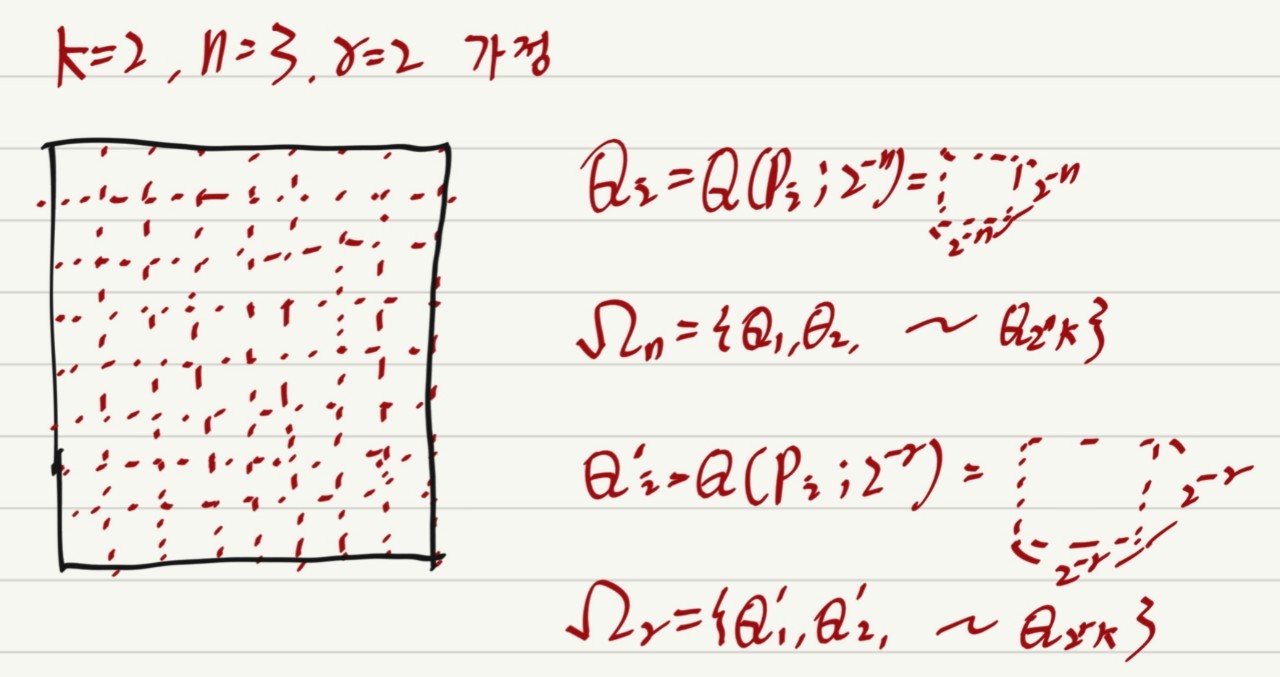 k=2, n=3, r=2 가정
Q_i = Q(P_i ; 2^{-n}) = 2^{-n} 2^{-n}
Ω_n = {Q_1, Q_2, ~ Q_{2^n k}}
Q'_i = Q(P_i ; 2^{-r}) = 2^{-r} 2^{-r}
Ω_r = {Q'_1, Q'_2, ~ Q_{2^r k}}